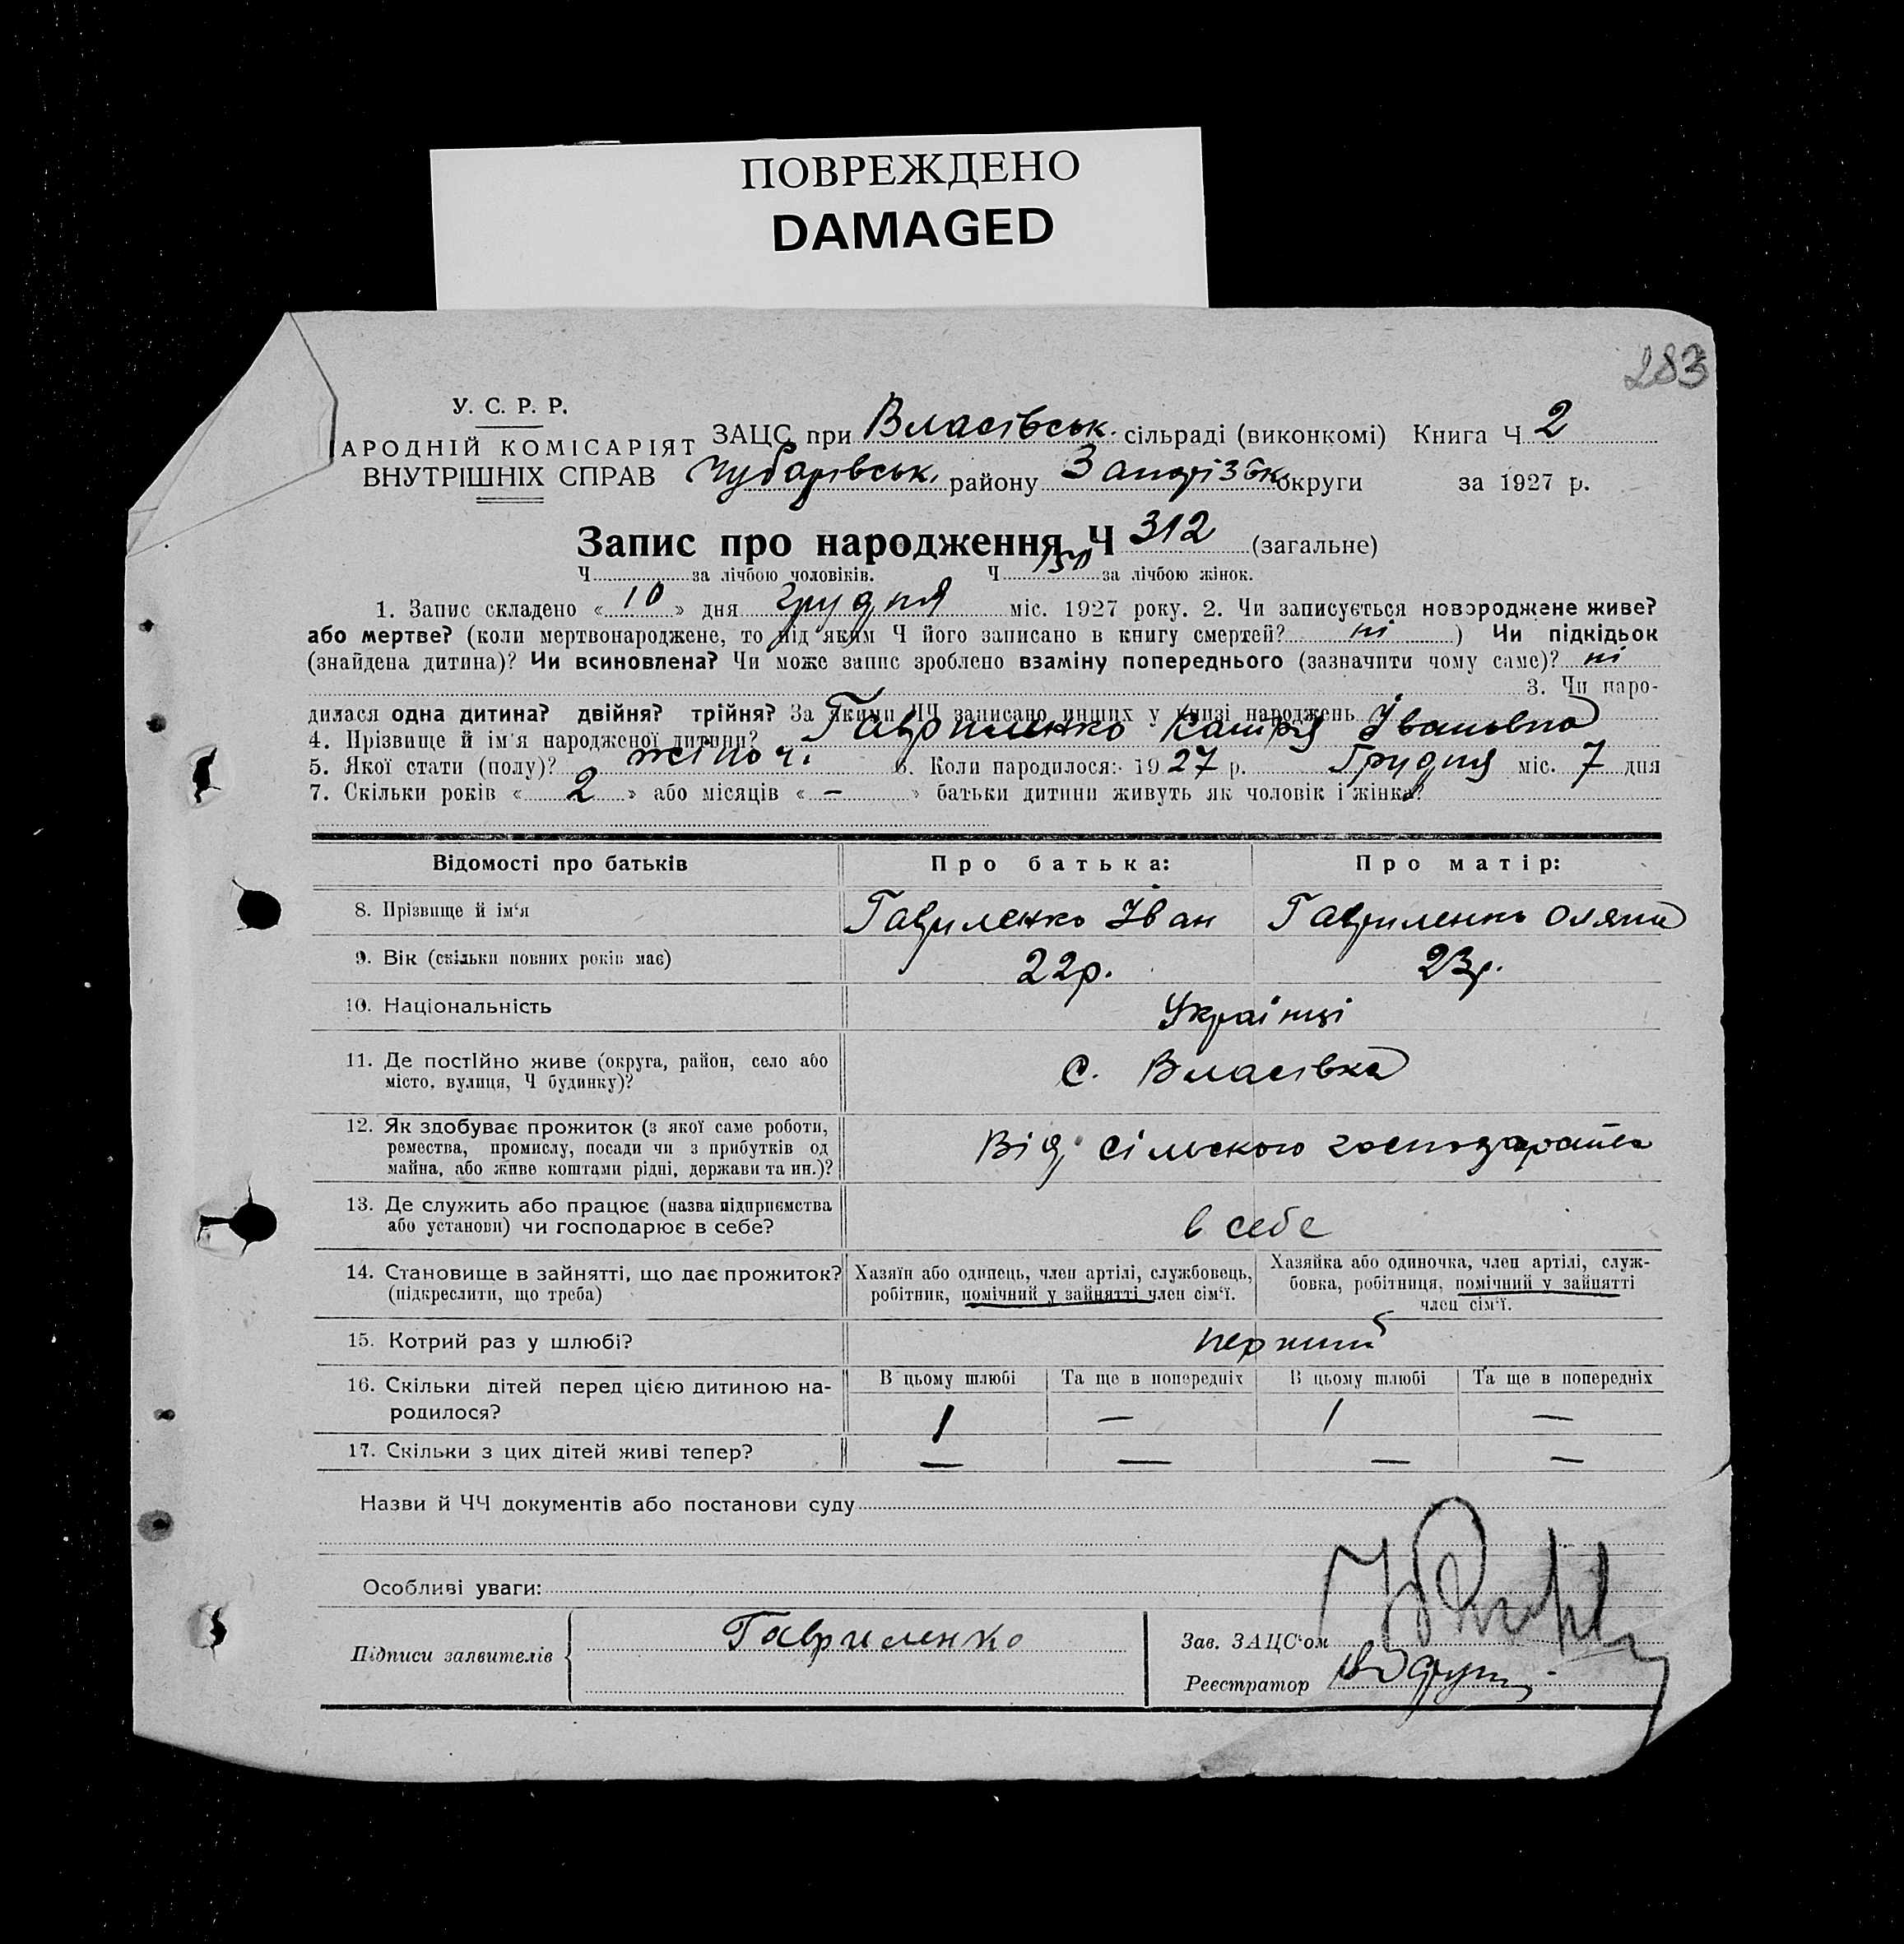 ПОВРЕЖДЕНО
DAMAGED
283
У. С. Р. Р.
АРОДНІЙ КОМІСАРІЯТ
ВНУТРІШНІХ СПРАВ
ЗАЦС при Власівськ. сільраді (виконкомі) Книга Ч 2
Чубарівськ. району Запорізьк округи за 1927 р.
Запис про народження Ч 312 (загальне)
Ч за лічбою чоловіків. Ч за лічбою жінок.
1. Запис складено « 10 » дня грудня міс. 1927 року. 2. Чи записується новороджене живе?
або мертве? (коли мертвонароджене, то під яким Ч його записано в книгу смертей? ні ) Чи підкідьок
(знайдена дитина)? Чи всиновлена? Чи може запис зроблено взаміну попереднього (зазначити чому саме)? ні
3. Чи наро-
дилася одна дитина? двійня? трійня? За якими ЧЧ записано инших у книзі народжень
4. Прізвище й ім'я народженої дитини? Гавриленко Катря Івановна
5. Якої стати (полу)? жіноч. 6. Коли народилося: 1927 р. Грудня міс. 7 дня
7. Скільки років « 2 » або місяців « – » батьки дитини живуть як чоловік і жінка?
Відомості про батьків Про батька: Про матір:
8. Прізвище й ім'я Гавриленко Іван Гавриленко Оляна
9. Вік (скільки повних років має) 22р. 23р.
10. Національність Українці
11. Де постійно живе (округа, район, село або
місто, вулиця, Ч будинку)?
с. Власівка
12. Як здобуває прожиток (з якої саме роботи,
ремества, промислу, посади чи з прибутків од
майна, або живе коштами рідні, держави та ин.)?
Від сільского господарства
13. Де служить або працює (назва підприємства
або установи) чи господарює в себе?
в себе
14. Становище в зайнятті, що дає прожиток?
(підкреслити, що треба)
Хазяїн або одинець, член артілі, службовець,
робітник, помічний у зайнятті член сім'ї.
Хазяйка або одиночка, член артілі, служ-
бовка, робітниця, помічний у зайнятті
член сім'ї.
15. Котрий раз у шлюбі? перший
16. Скільки дітей перед цією дитиною на-
родилося?
В цьому шлюбі Та ще в попередніх В цьому шлюбі Та ще в попередніх
1 — 1 —
17. Скільки з цих дітей живі тепер? — — — —
Назви й ЧЧ документів або постанови суду
Особливі уваги:
Підписи заявителів Гавриленко
Зав. ЗАЦС'ом
Реєстратор